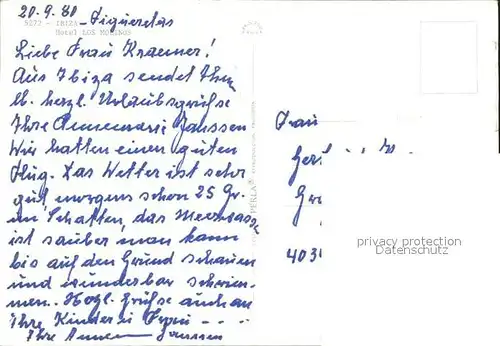 20.9.80 Figueretas
5272 - IBIZA
Hotel LOS MOLINOS
Liebe Frau Kraemer!
Aus Ibiza sendet Ihnen
lb. herzl. Urlaubsgrüße
Ihre Annemarie Janssen
Wir hatten einen guten
Flug. Das Wetter ist sehr
gut, morgens schon 25 Gr.
im Schatten, das Meerwasser
ist sauber man kann
bis auf den Grund schauen
und wunderbar schwim-
men. Hrzl. Grüße auch an
Ihre Kinder
Ihre Janssen
Frau
403
PERLA
privacy protection
Datenschutz